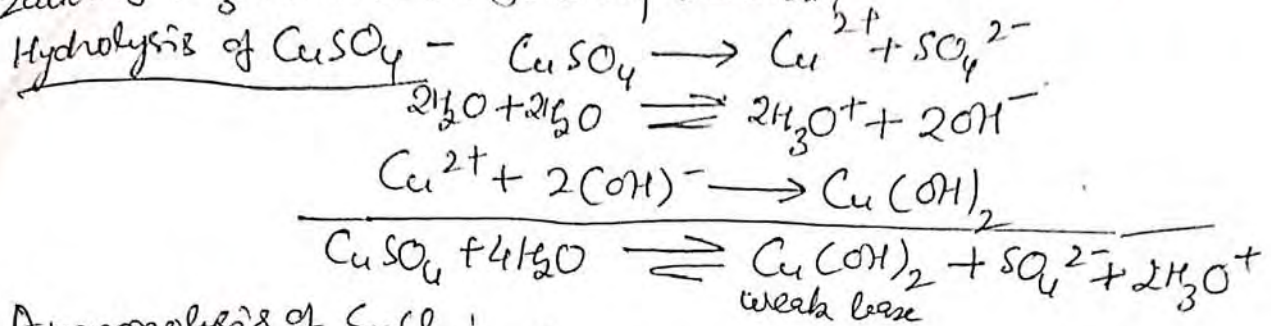 Hydrolysis of CuSO₄ - CuSO₄ ⟶ Cu²⁺ + SO₄²⁻
2H₂O + 2H₂O ⇌ 2H₃O⁺ + 2OH⁻
Cu²⁺ + 2(OH)⁻ ⟶ Cu(OH)₂
CuSO₄ + 4H₂O ⇌ Cu(OH)₂ + SO₄²⁻ + 2H₃O⁺
weak base
of